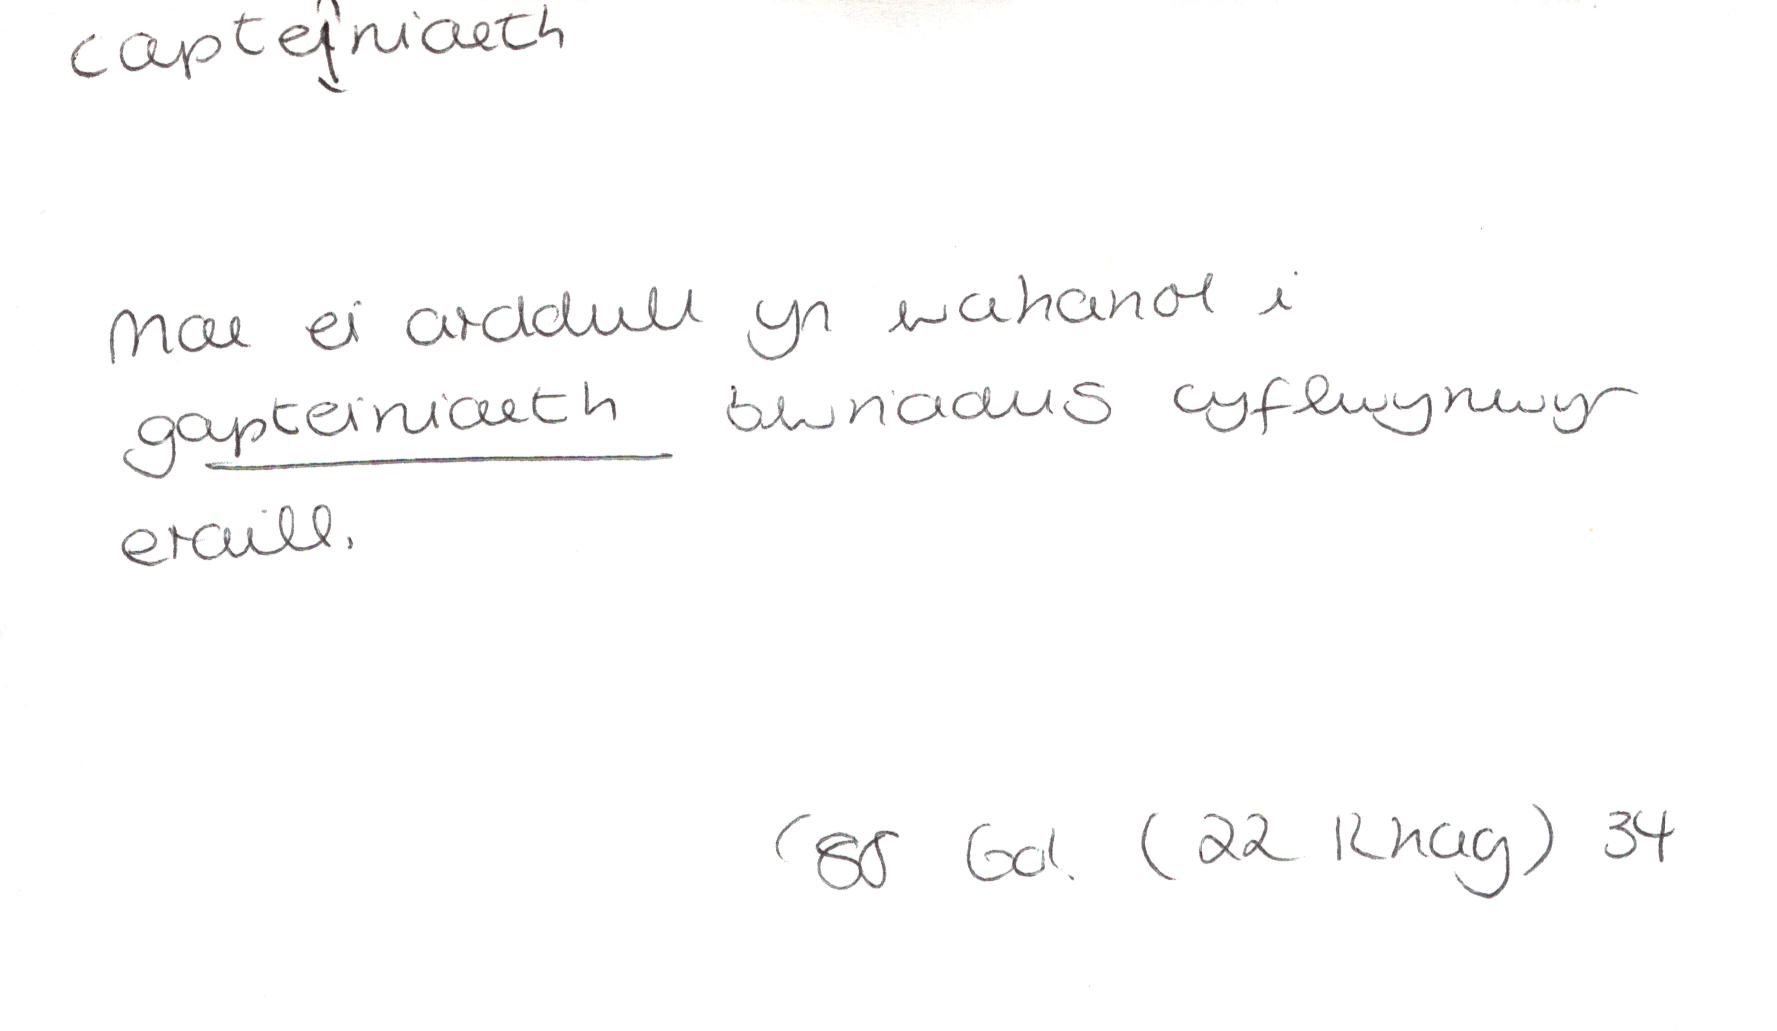 capteiniaeth
Mae ei arddull yn wahanol i
gapteiniaeth bwnadus cyflwynwyr
eraill.
(85 Gol. (22 Rhag) 34